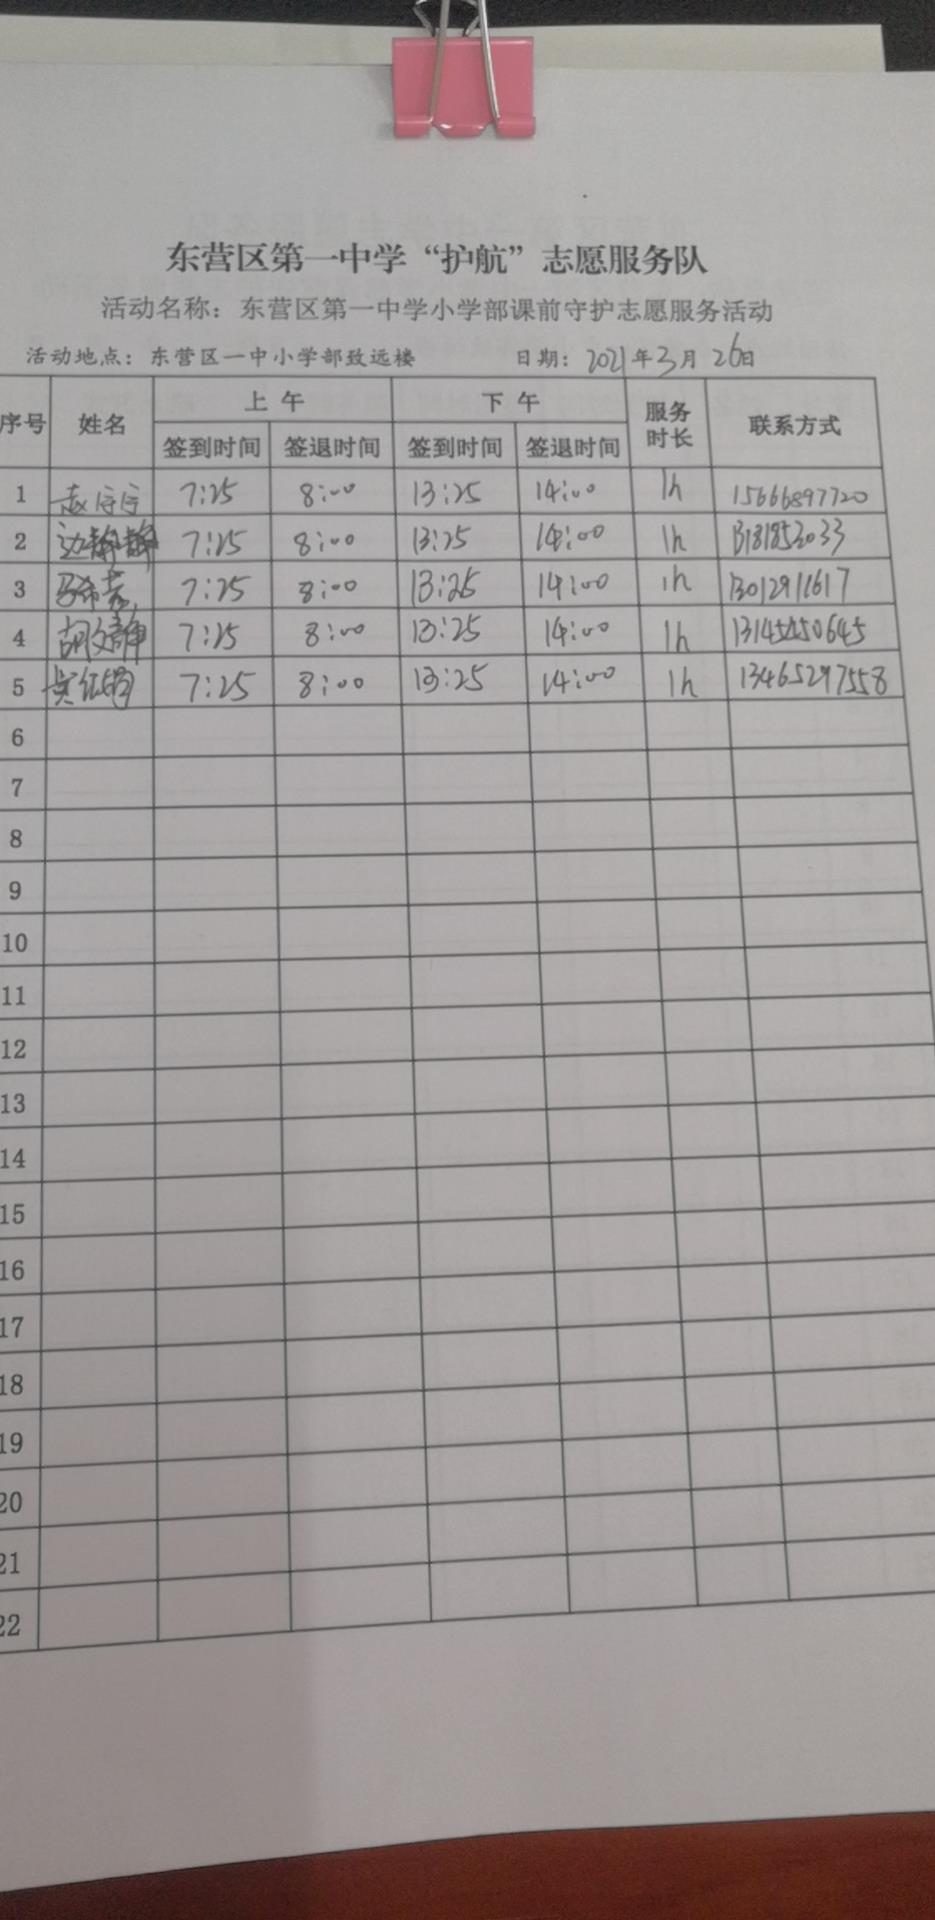 东营区第一中学“护航”志愿服务队
活动名称：东营区第一中学小学部课前守护志愿服务活动
活动地点：东营区一中小学部致远楼 日期：2021年3月26日
序号 姓名 上午 下午 服务时长 联系方式
签到时间 签退时间 签到时间 签退时间
1 7:25 8:00 13:25 14:00 1h 15666897720
2 边静静 7:25 8:00 13:25 14:00 1h
3 7:25 8:00 13:25 14:00 1h
4 胡文静 7:25 8:00 13:25 14:00 1h
5 7:25 8:00 13:25 14:00 1h 13465297558
6
7
8
9
10
11
12
13
14
15
16
17
18
19
20
21
22